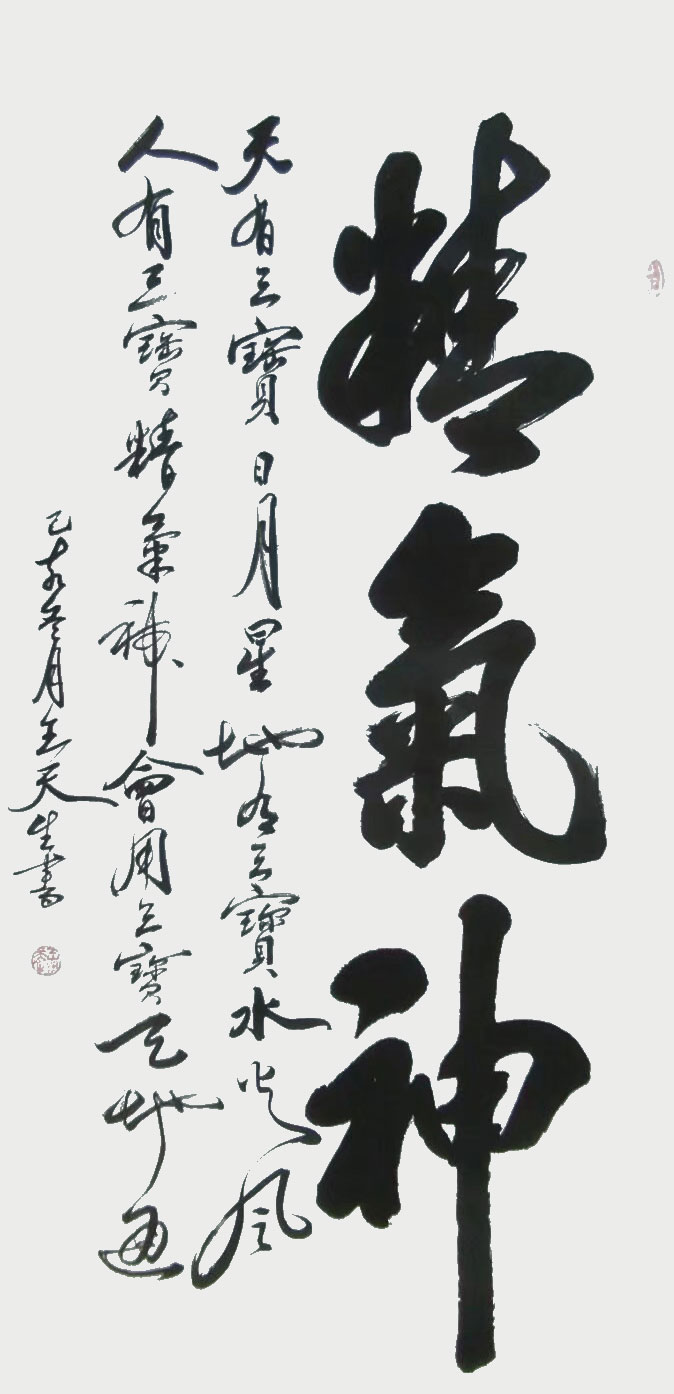 精氣神
天有三寶日月星地有三寶水火風
人有三寶精氣神會用三寶天地通
己亥冬月王天生書